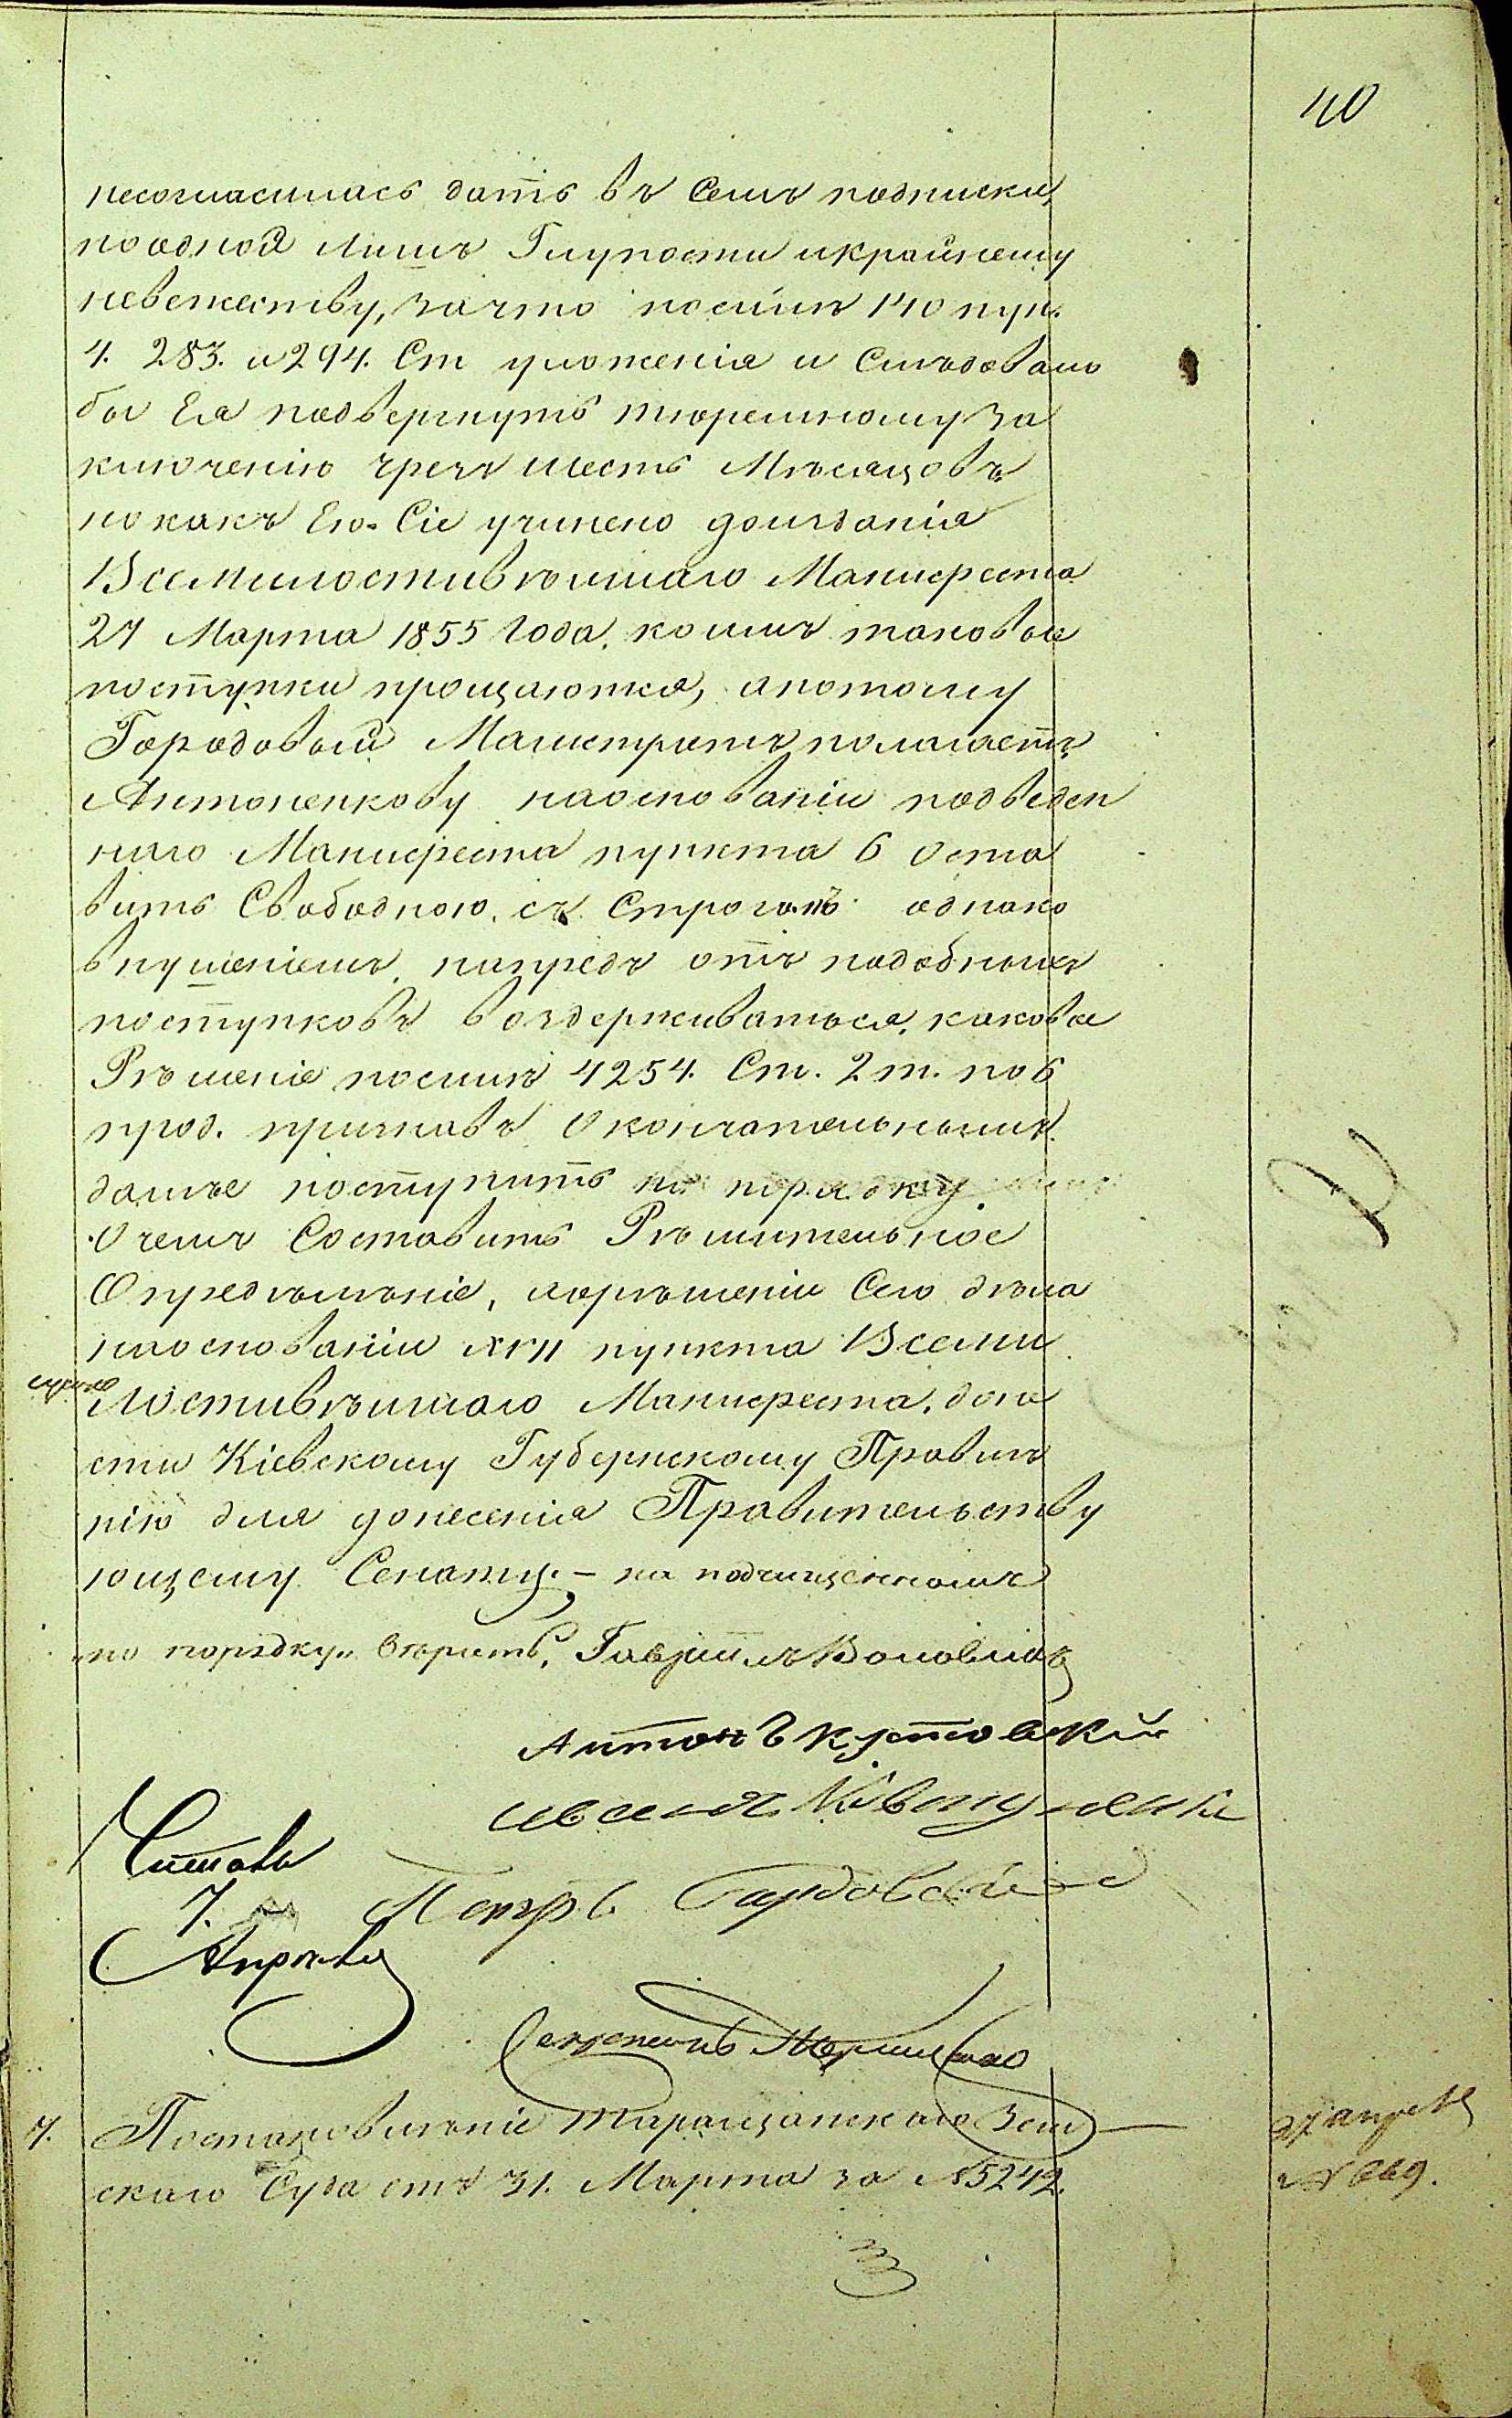 40
несогласилась дать въ Семъ подписки,
поодной лишъ Глупости икрайнему
невежеству, зачто посилѣ 140 пун.
4. 283. и 294. Ст уложенія и Слѣдовало
бы Ея подвергнуть тюремному за
ключенію чрезъ шесть Мѣсяцовъ
но какъ Ею. Сіе учинено доизданія
Всемилостивѣйшаго Манифеста
27 Марта 1855 Года. коимъ таковые
поступки прощаются, апотому
Городовый Магистратъ полагаетъ
Антоненкову наоснованіи подведен
наго Манифеста пункта 6 Оста
вить Свободною. съ Строгомъ однако
внушеніемъ напредъ отъ подобныхъ
поступковъ воздерживаться, каковое
Рѣшеніе посилѣ 4254. Ст. 2 т. по 6
прод. признавъ Окончательнымъ
далѣе поступить по порядку
О чемъ Составить Рѣшительное
Опредѣленіе, аорѣшеніи Сего дѣла
наоснованіи XVII пункта Всеми
лостивѣйшаго Манифеста, доне
сти Кіевскому Губернскому Правлѣ
нію для донесенія Правительству
ющему Сенату. – на подчищенномъ
„по порядку„ вѣрить. Гавріилъ
Антонъ
Петръ
Читалъ
7.
Секретарь
7. Постановлѣніе Таращанскаго Зем
скаго Суда отъ 31. Марта за №5242.
27 апреля
№ 669.